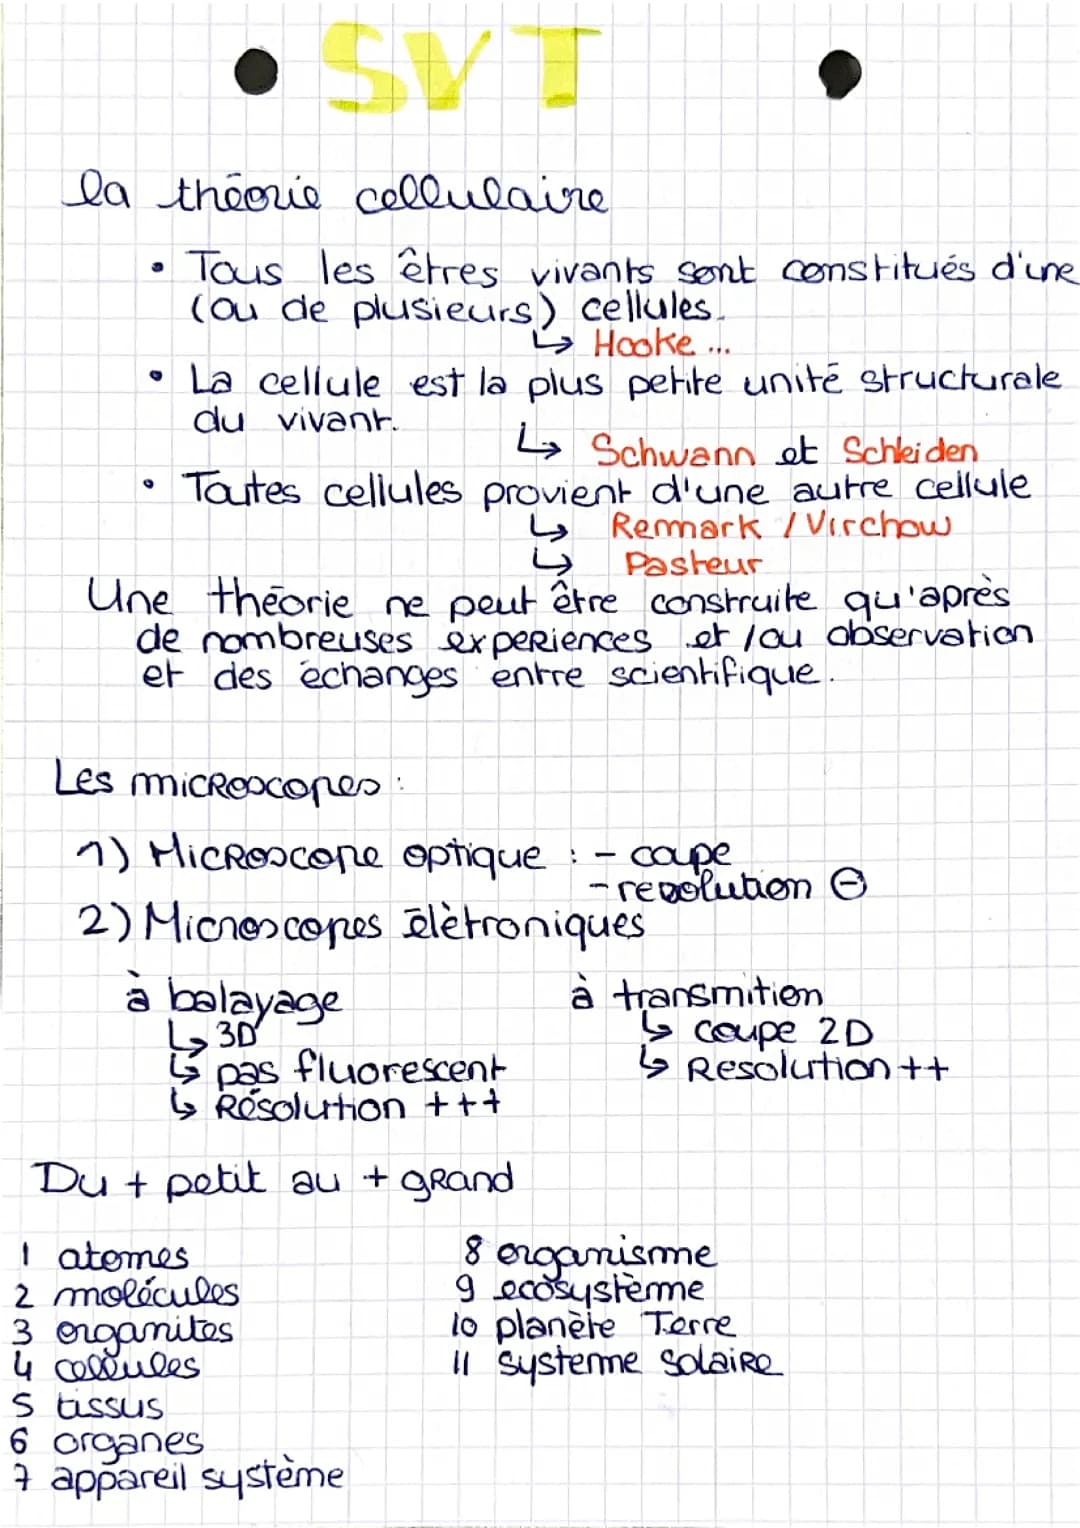 SVT
la théorie cellulaire
• Tous les êtres vivants sont constitués d'une
(ou de plusieurs) cellules.
↳ Hooke ...
• La cellule est la plus petite unité structurale
du vivant.
↳ Schwann et Schleiden
• Toutes cellules provient d'une autre cellule
↳ Remark / Virchow
↳ Pasteur
Une théorie ne peut être construite qu'après
de nombreuses experiences et/ou observation
et des échanges entre scientifique.
Les microscopes :
1) Microscope optique : - coupe
- resolution ⊖
2) Microscopes élètroniques
à balayage
↳ 3D
↳ pas fluorescent
↳ Résolution +++
à transmition
↳ coupe 2D
↳ Resolution ++
Du + petit au + grand
1 atomes
2 molécules
3 organites
4 cellules
5 tissus
6 organes
7 appareil système
8 organisme
9 ecosystème
10 planète Terre
11 systeme solaire